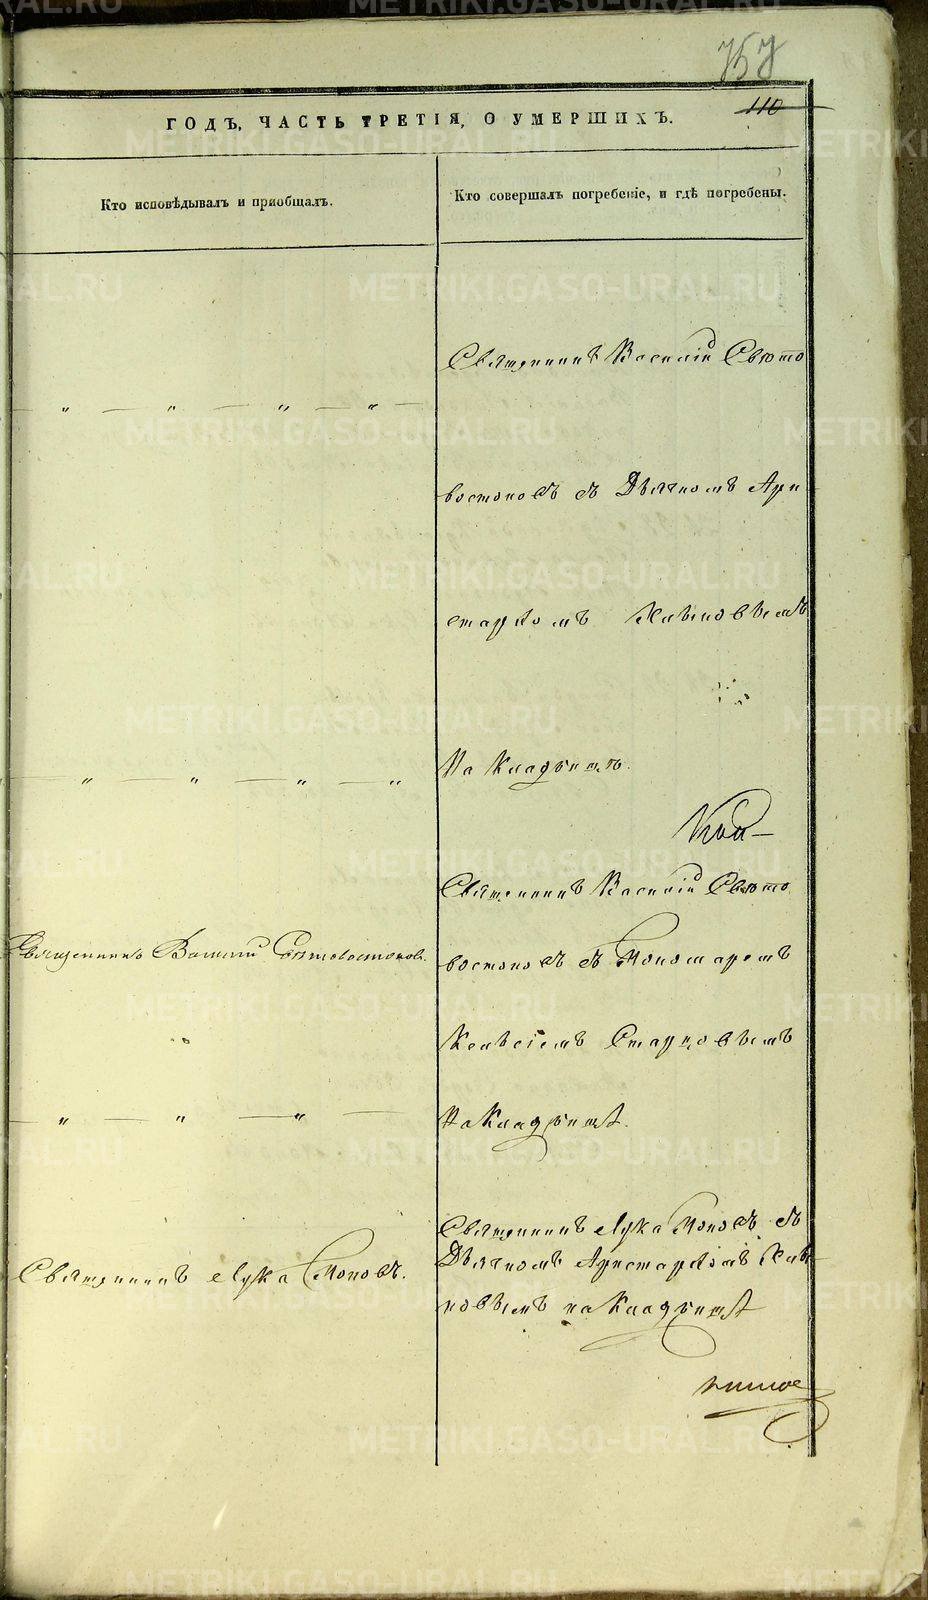 757
110
ГОДЪ, ЧАСТЬ ТРЕТІЯ, О УМЕРШИХЪ.
Кто исповѣдывалъ и пріобщалъ.
Кто совершалъ погребеніе, и гдѣ погребены.
Священникъ Василій Свято
востоковъ съ Дьячкомъ Ари
стархомъ
На Кладбищѣ.
Священникъ Василій Свято
Священникъ Василій Святовостоковъ.
востоковъ съ Пономаремъ
Старцовымъ
На Кладбищѣ.
Священникъ Лука Поповъ съ
Дьячкомъ Аристархомъ
Священникъ Лука Поповъ.
новымъ на Кладбищѣ
METRIKI.GASO-URAL.RU